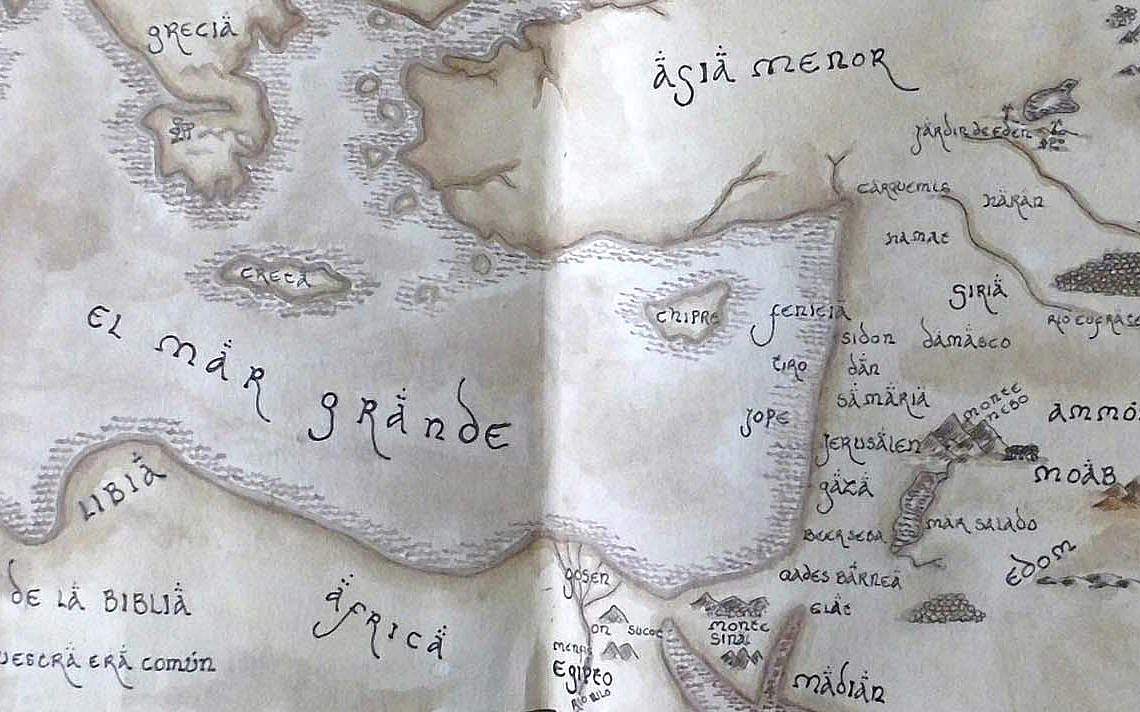 GRECIA
ASIA MENOR
JARDIN DE EDEN
CARQUEMIS
HARAN
HAMAT
CRETA
SIRIA
EL MAR GRANDE
CHIPRE
FENICIA
SIDON
DAMASCO
TIRO
DAN
SAMARIA
MONTE
NEBO
JOPE
JERUSALEN
MOAB
LIBIA
GAZA
MAR SALADO
BEERSEBA
EDOM
GOSEN
QADES BARNEA
DE LA BIBLIA
AFRICA
ELAT
ON
SUCOT
MONTE
SINAI
ERA COMÚN
EGIPTO
MADIAN
RIO NILO